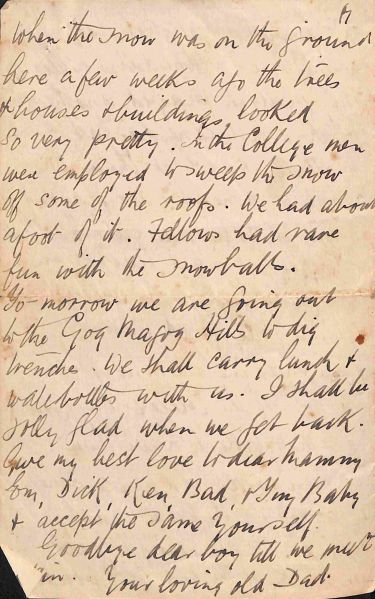 When the snow was on the ground
here a few weeks ago the trees
& houses & buildings looked
so very pretty. In the College men
were employed to sweep the snow
off some of the roofs. We had about
a foot of it. Fellows had rare
fun with the snowballs.
To morrow we are going out
to the Gog Magog Hills to dig
trenches. We shall carry lunch &
waterbottles with us. I shall be
jolly glad when we get back.
Give my best love to dear Mammy
Tom, Dick, Ken, Bad, & Tiny Baby
& accept the same yourself.
Goodbye dear boy till we meet
in. Your loving old Dad.